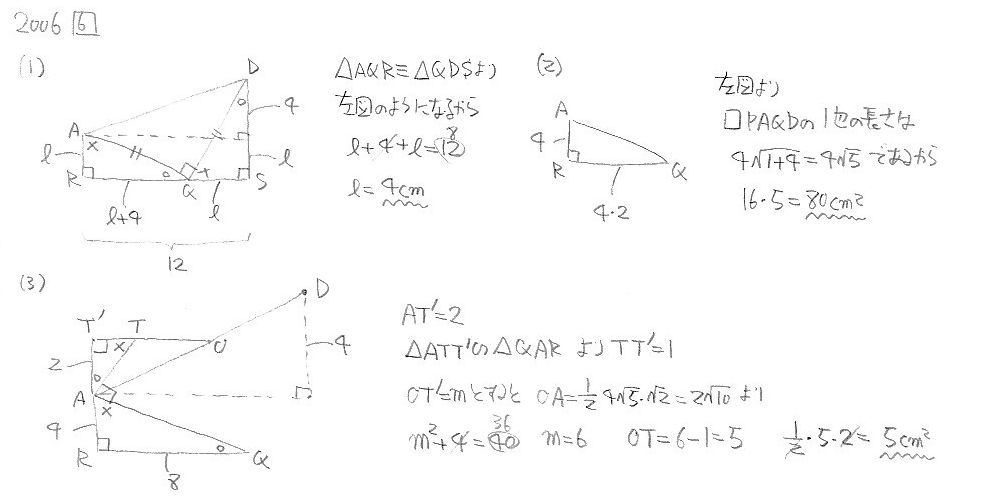 2006 6
(1)
D
4
A
l
R
l+4
Q
l
S
l
12
△AQR≡△QDSより
左図のようになるから
l+4+l=12 8
l=4cm
(2)
A
4
R
Q
4・2
左図より
□PAQDの1辺の長さは
4√1+4=4√5であるから
16・5=80cm²
(3)
D
T' T
O
2
4
A
4
R
8
Q
AT'=2
△ATT'の△QAR よりTT'=1
OT'=mとすると OA=1/2 4√5・√2=2√10より
m²+4=40 36 m=6 OT=6-1=5 1/2・5・2=5cm²